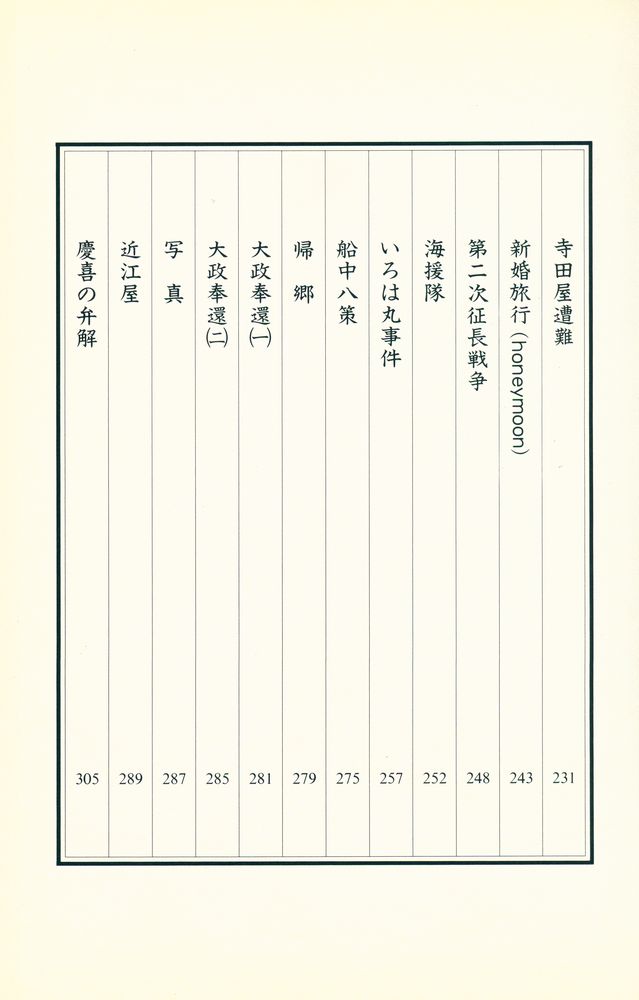 寺田屋遭難 231
新婚旅行(honeymoon) 243
第二次征長戦争 248
海援隊 252
いろは丸事件 257
船中八策 275
帰郷 279
大政奉還㈠ 281
大政奉還㈡ 285
写真 287
近江屋 289
慶喜の弁解 305